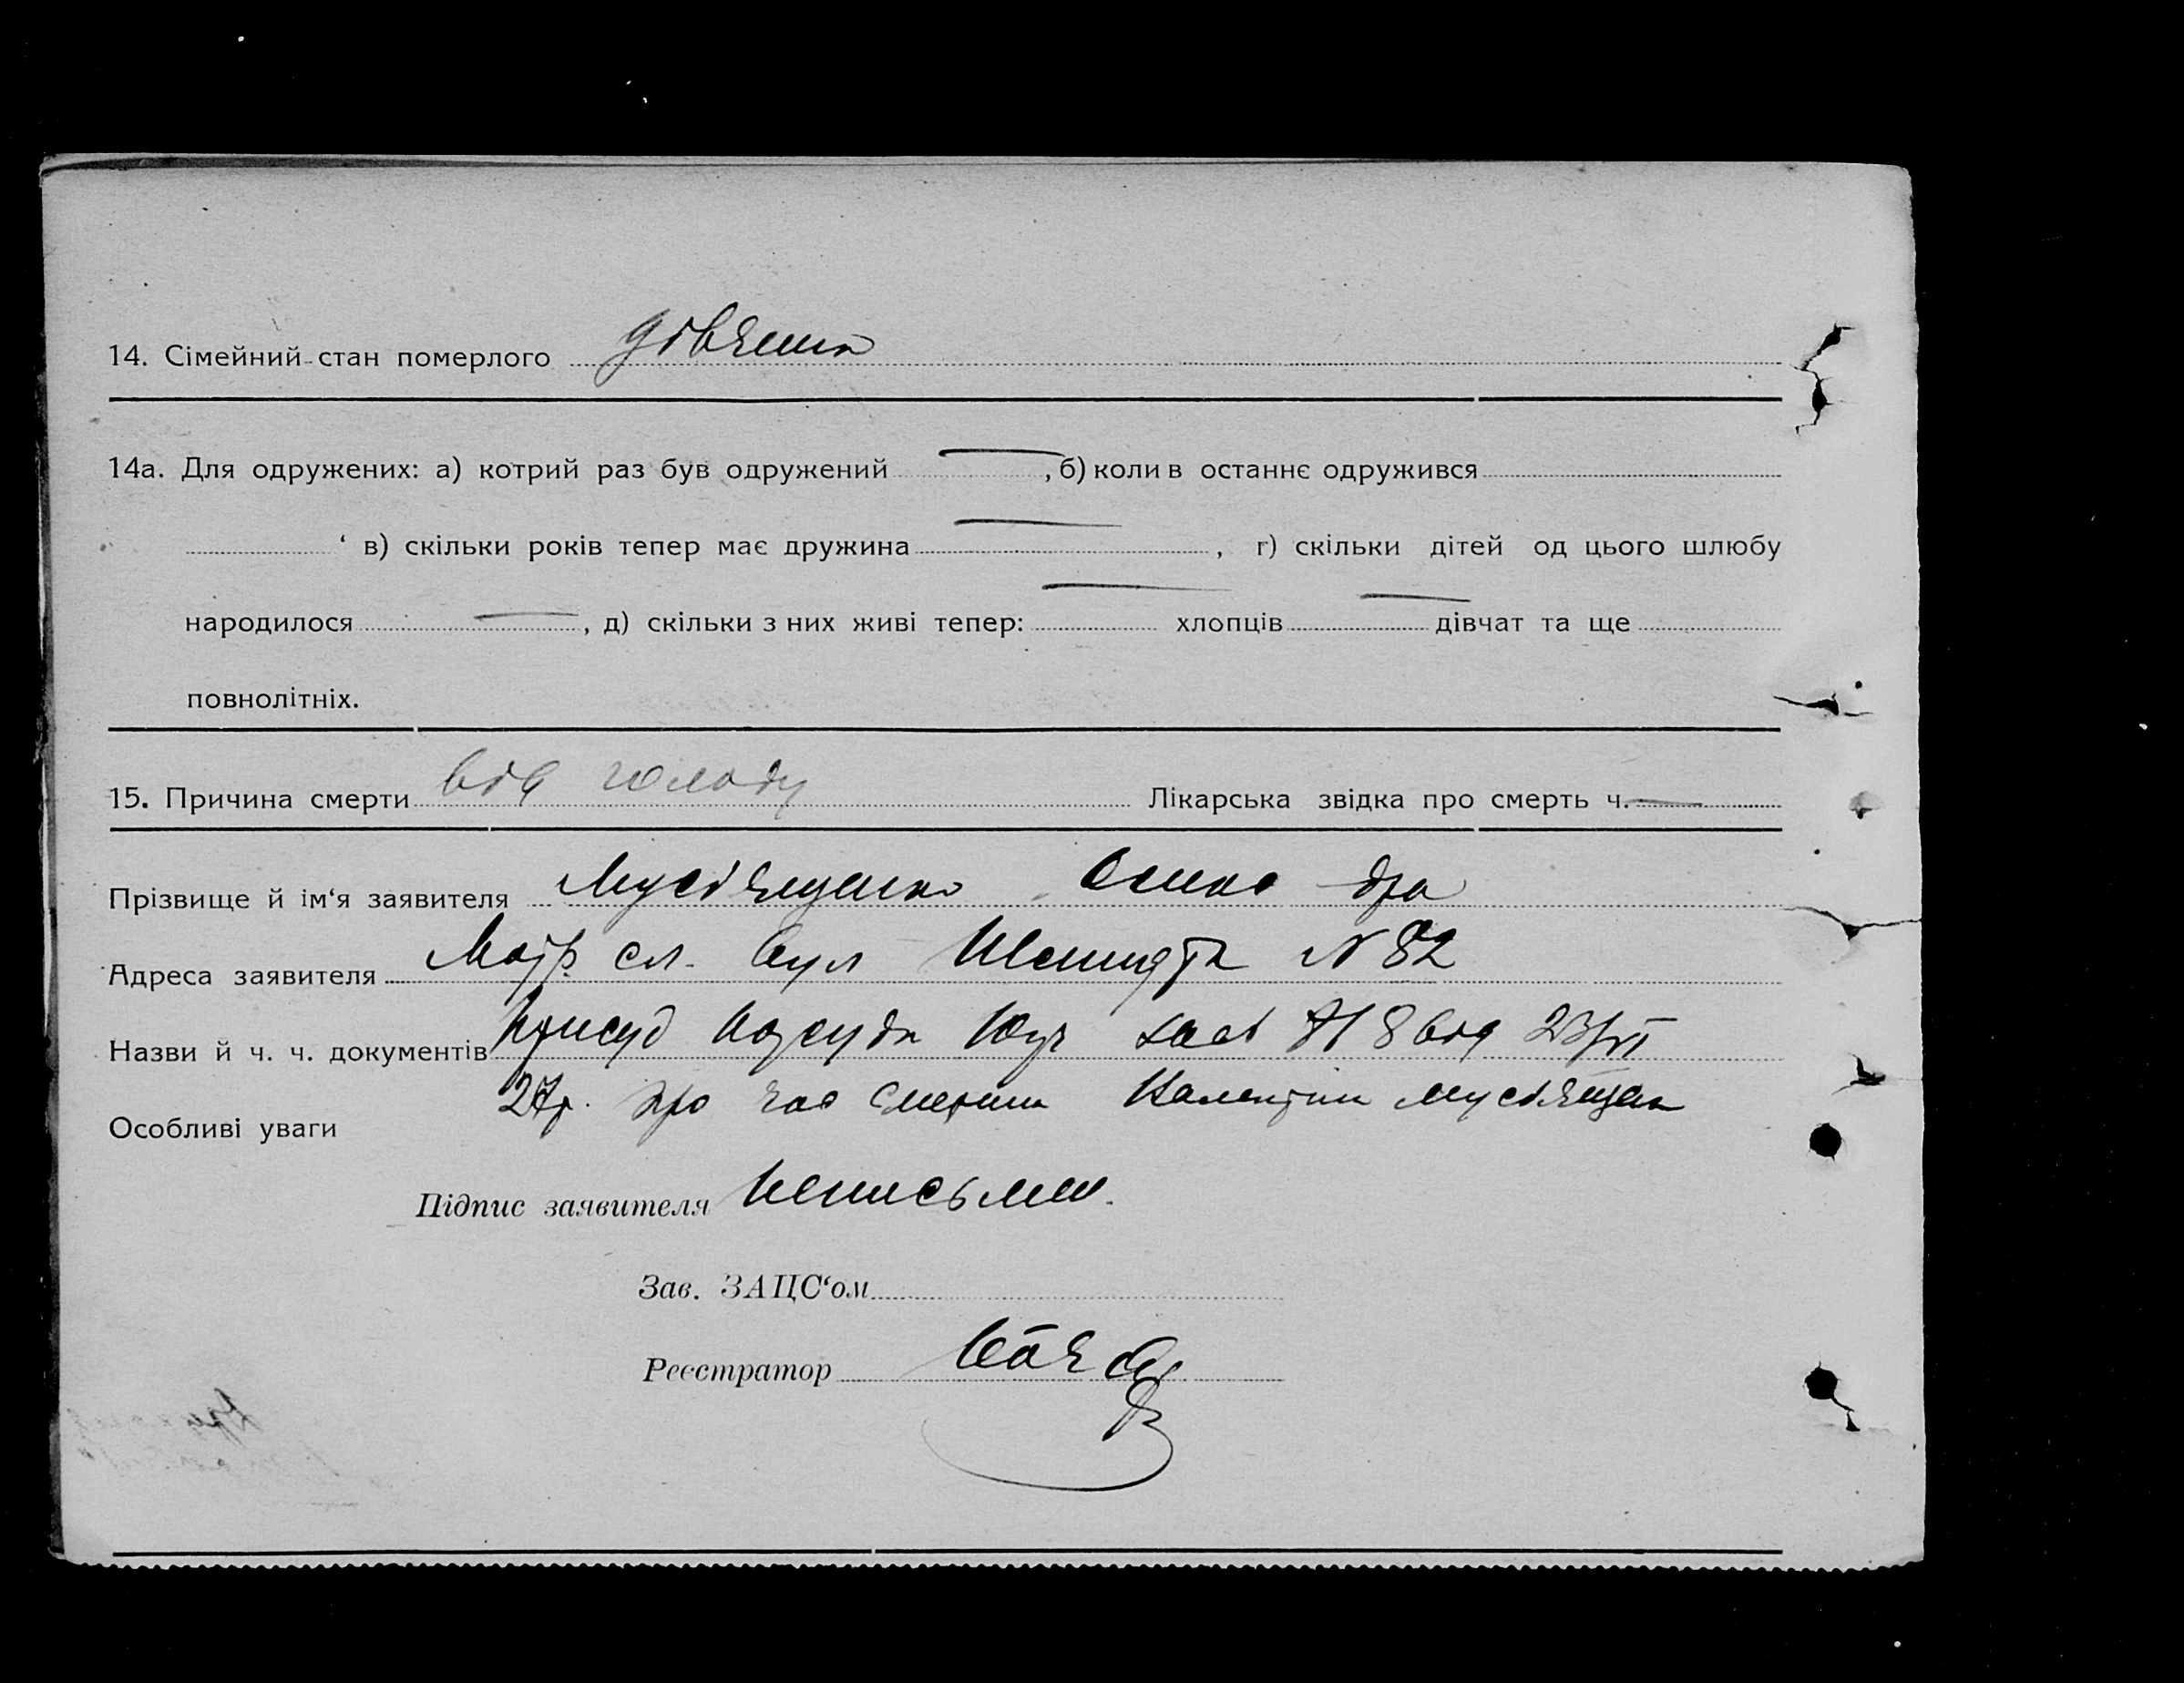 14. Сімейний стан померлого дівчина
14а. Для одружених: а) котрий раз був одружений —, б) коли в останнє одружився
‘ в) скільки років тепер має дружина —, г) скільки дітей од цього шлюбу
народилося —, д) скільки з них живі тепер: — хлопців — дівчат та ще
повнолітніх.
15. Причина смерти від голоду Лікарська звідка про смерть ч. —
Прізвище й ім‘я заявителя Мусіященко
Адреса заявителя сл. вул Шмидта N 82
Назви й ч. ч. документів присуд Нарсуда 8 від 23/VI
27р. про час смерти Мусіящен
Особливі уваги
Підпис заявителя неписьмен.
Зав. ЗАЦС‘ом
Реєстратор